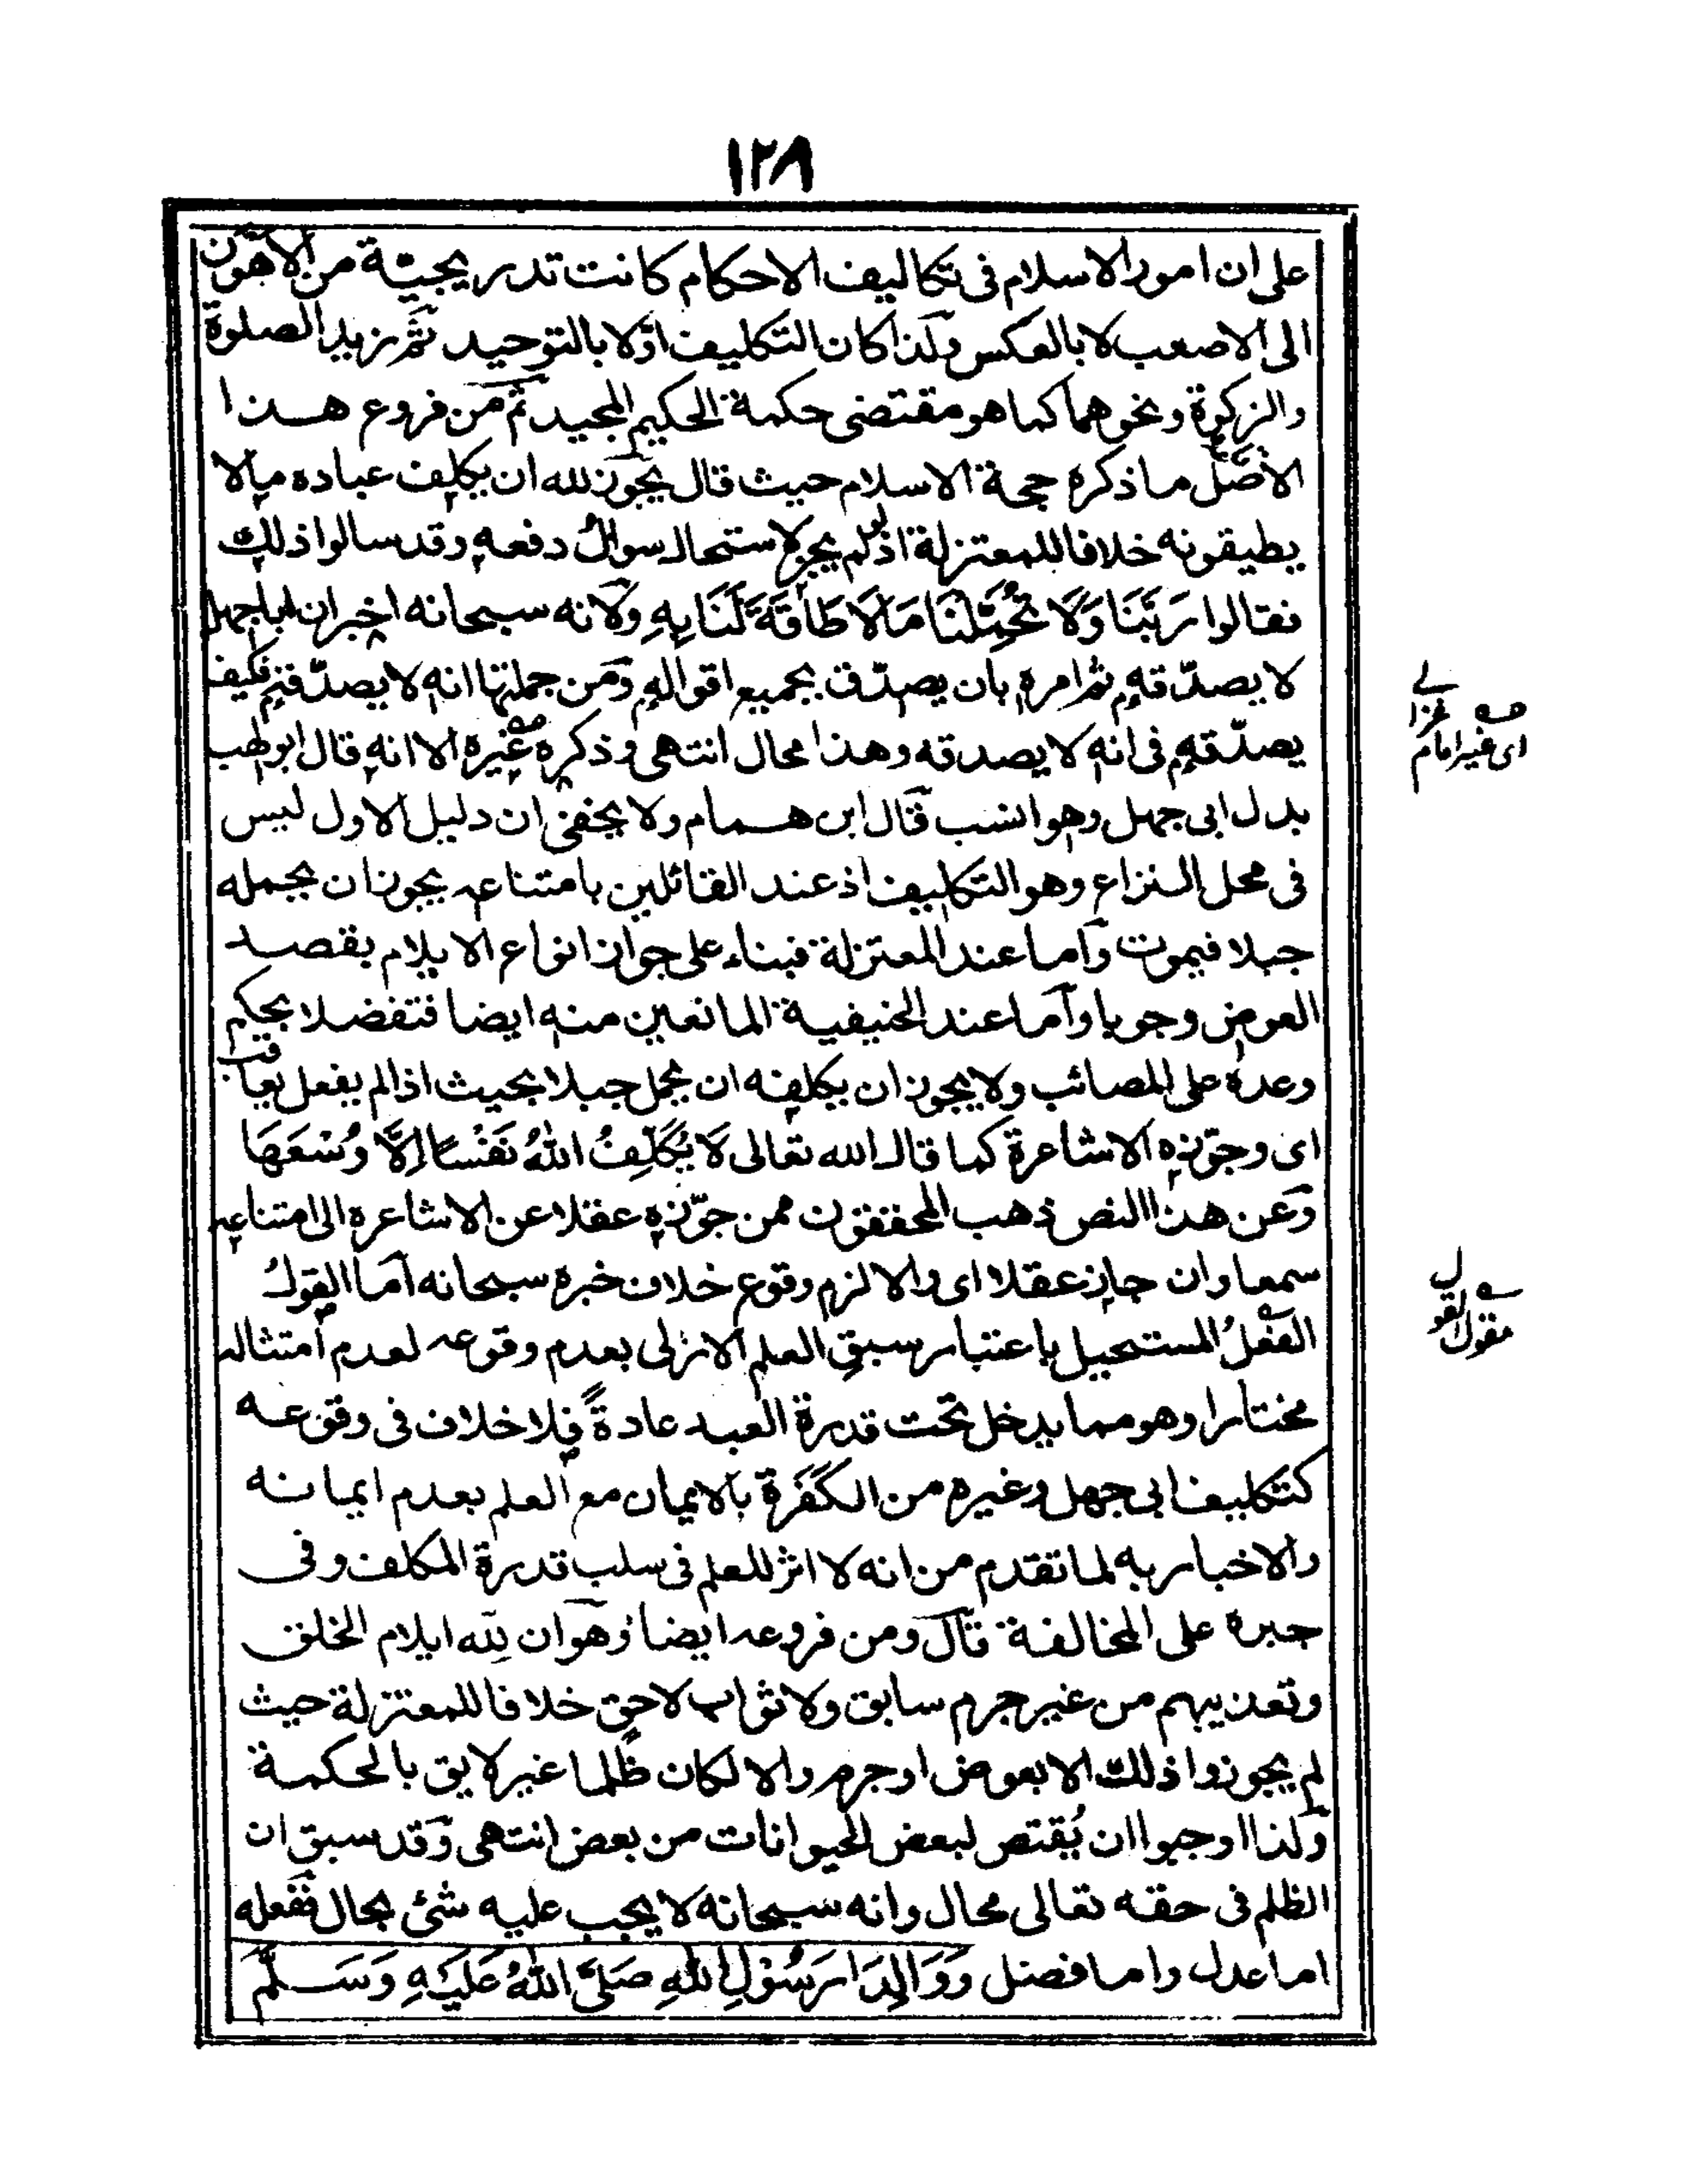 ١٢٨
على ان امور الاسلام فى تكاليف الاحكام كانت تدريجيّة من الاهون
الى الاصعب لا بالعكس ولذا كان التكليف اوّلا بالتوحيد ثم زيد الصلوة
والزكوة ونحوهما كما هو مقتضى حكمة الحكيم المجيد ثم من فروع هذا
الاصل ما ذكره حجة الاسلام حيث قال يجوز لله ان يكلف عباده مالا
يطيقونه خلافا للمعتزلة اذ لو لم يجز لاستحال سوالُ دفعه وقد سالوا ذلك
فقالوا رَبَّنَا وَلَا تُحَمِّلْنَا مَالَا طَاقَةَ لَنَا بِهِ ولانه سبحانه اخبر ان ابا جهل
لا يصدّقه ثم امره بان يصدّق بجميع اقواله ومن جملتها انه لا يصدّقه فكيف
يصدّقه فى انه لا يصدقه وهذا محال انتهى وذكره غيره الا انه قال ابو لهب
بدل ابى جهل وهو انسب قال ابن همام ولا يخفى ان دليل الاول ليس
فى محل النزاع وهو التكليف اذ عند القائلين بامتناعه يجوز ان يحمله
جبلا فيموت واما عند المعتزلة فبناء على جواز انواع الايلام بقصد
العوض وجوبا واما عند الحنيفية المانعين منه ايضا فتفضلا بحكم
وعده على المصائب ولا يجوز ان يكلفه ان يحمل جبلا بحيث اذا لم يفعل يعاقب
اى وجوّزه الاشاعرة كما قال الله تعالى لَا يُكَلِّفُ اللهُ نَفْسًا اِلَّا وُسْعَهَا
وعن هذا النص ذهب المحققون ممن جوّزه عقلا عن الاشاعرة الى امتناعه
سمعا وان جاز عقلا اى والا لزم وقوع خلاف خبره سبحانه اما القولُ
الفعلُ المستحيل باعتبار سبق العلم الازلى بعدم وقوعه لعدم امتثاله
مختارا وهو مما يدخل تحت قدرة العبد عادةً فلا خلاف فى وقوعه
كتكليف ابى جهل وغيره من الكَفَرة بالايمان مع العلم بعدم ايمانه
والاخبار به لما تقدم من انه لا اثر للعلم فى سلب قدرة المكلف وفى
جبره على المخالفة قال ومن فروعه ايضا وهو ان لله ايلام الخلق
وتعذيبهم من غير جرم سابق ولا ثواب لاحق خلافا للمعتزلة حيث
لم يجوزوا ذلك الا بعوض او جرم والا لكان ظلما غير لايق بالحكمة
ولذا اوجبوا ان يُقتص لبعض الحيوانات من بعض انتهى وقد سبق ان
الظلم فى حقه تعالى محال وانه سبحانه لا يجب عليه شئ بحال ففعله
اما عدل واما فضل وَوَالِدَا رَسُوْلِ اللهِ صَلَّى اللهُ عَلَيْهِ وَسَلَّمَ
اى غير امام
غزالى
مقول القول